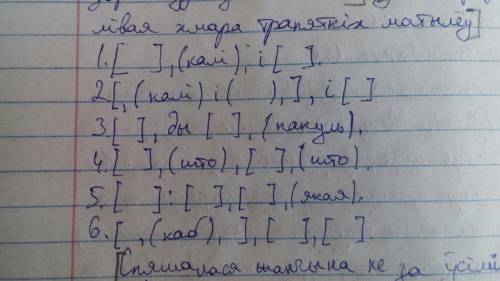 мівая хмара трапяткіх матылёў]
1. [ ], (калі), і [ ].
2. [, (калі) і ( ), ], і [ ]
3. [ ], ды [ ], (пакуль).
4. [ ], (што), [ ], (што).
5. [ ] : [ ], [ ], (якая).
6. [ , (каб), ], [ ], [ ].
[Спяшалася жанчына не за ўсімі